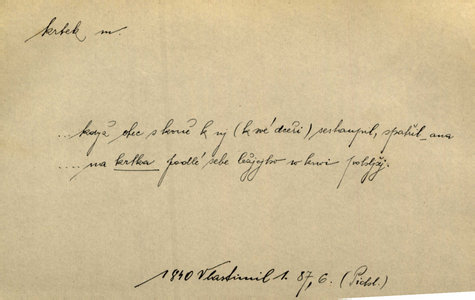 krtek m.
.... když otec s koně k nj (k své dceři) sestaupil, spatřil ana
.... na krtka podlé sebe ležjcyho w krwi
1840 Vlastimil 1. 87, 6. (Pichl.)